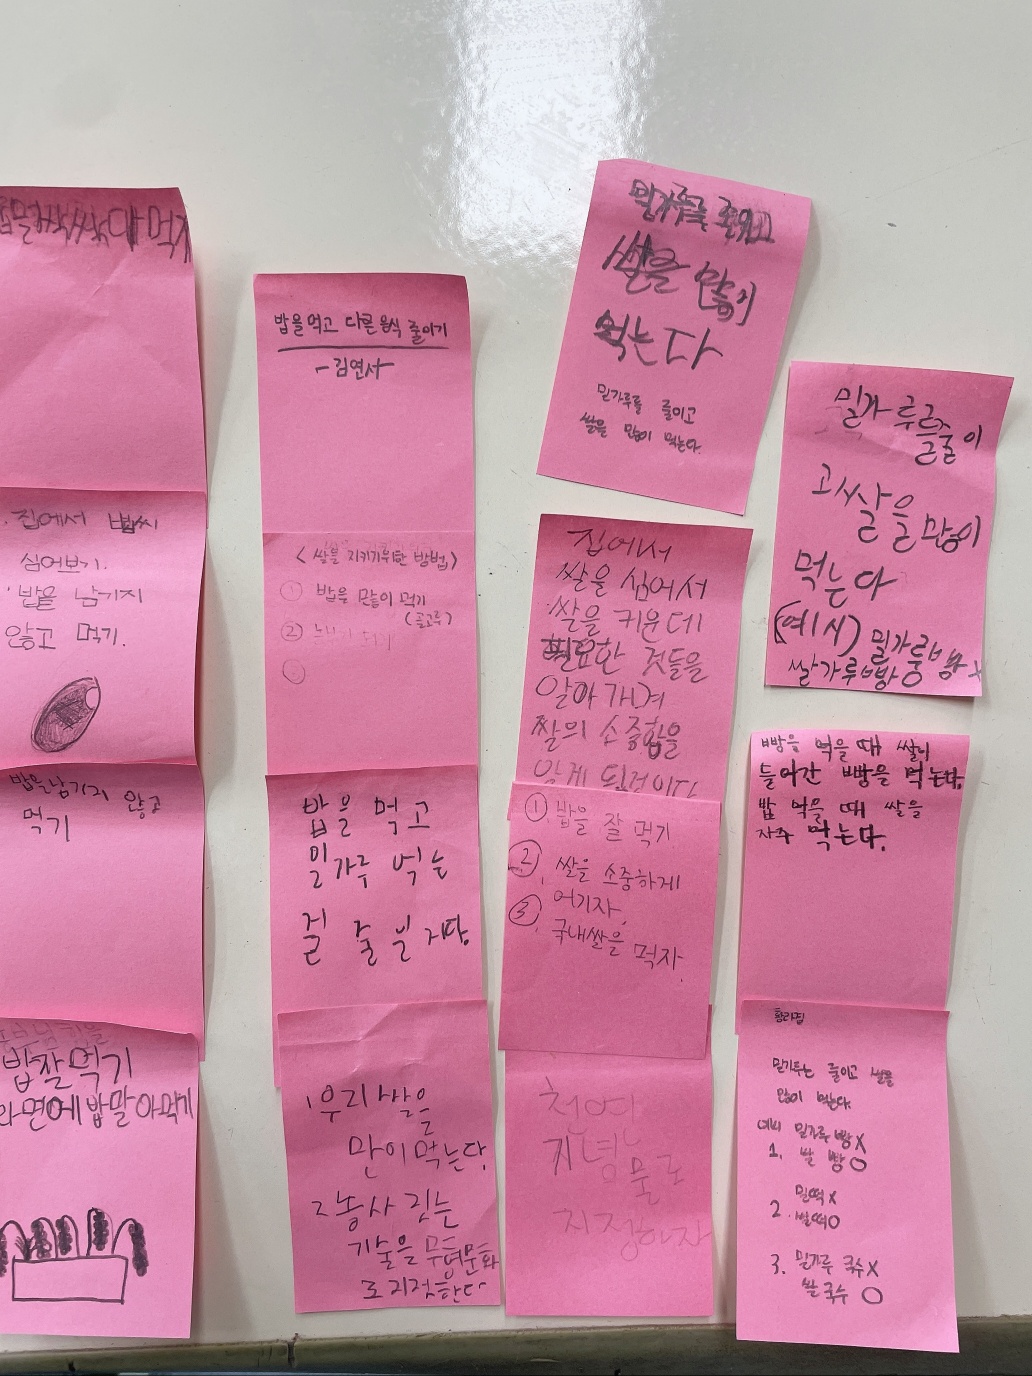 대 먹기
집에서 볍씨
심어보기.
밥을 남기지
않고 먹기.
밥을 남기지 않고
먹기
밥잘먹기
라면에밥말아먹기
밥을먹고 다른 음식 줄이기
-김연서
<쌀을 지키기위한 방법>
① 밥을 많이 먹기
(골고루)
②
밥을 먹고
밀가루 먹는
걸 줄
1우리쌀을
만이먹는다.
2농사 짓는
기술을 무형문화
로 지정한다
밀가루를 줄이고
쌀을 많이
먹는다
밀가루를 줄이고
쌀을 많이 먹는다.
집에서
쌀을 심어서
쌀을 키운데
필요한 것들을
알아가며
쌀의 소중함을
알게 된것이다
① 밥을 잘 먹기
②. 쌀을 소중하게
여기자.
③. 국내쌀을 먹자.
천연
기념물로
지정하자
밀가루를줄이
고쌀을많이
먹는다
(예시) 밀가루빵x
쌀가루빵O
빵을 먹을때 쌀이
들어간 빵을 먹는다.
밥 먹을때 쌀을
자주 먹는다.
밀가루는 줄이고 쌀을
많이 먹는다.
예시 밀가루빵X
1. 쌀 빵O
밀떡X
2. 쌀떡O
3. 밀가루 국수X
쌀국수 O